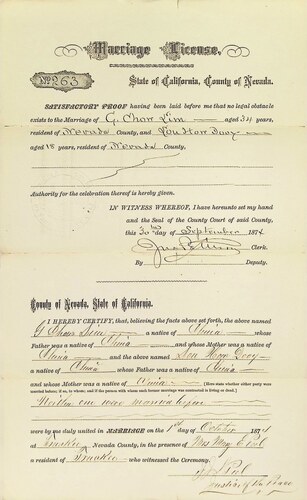 Marriage License.
No. 263
State of California, County of Nevada.
SATISFACTORY PROOF having been laid before me that no legal obstacle
exists to the Marriage of G. Chow Sim aged 34 years,
resident of Nevada County, and
aged 18 years, resident of Nevada County.
Authority for the celebration thereof is hereby given.
IN WITNESS WHEREOF, I have hereunto set my hand
and the Seal of the County Court of said County,
this 30th day of September 1874
Clerk.
By Deputy.
County of Nevada, State of California.
I HEREBY CERTIFY, that, believing the facts above set forth, the above named
G Chow Sim a native of China whose
Father was a native of China and whose Mother was a native of
China and the above named
a native of China whose Father was a native of China
and whose Mother was a native of China (Here state whether either party were
married before; if so, to whom; and if the person with whom such former marriage was contracted is living or dead.)
Neither one was married before
were by me duly united in MARRIAGE on the 1st day of October 1874
at Truckee Nevada County, in the presence of Mrs Mary E. Peel
a resident of Truckee who witnessed the Ceremony.
Peel
Justice of the Peace